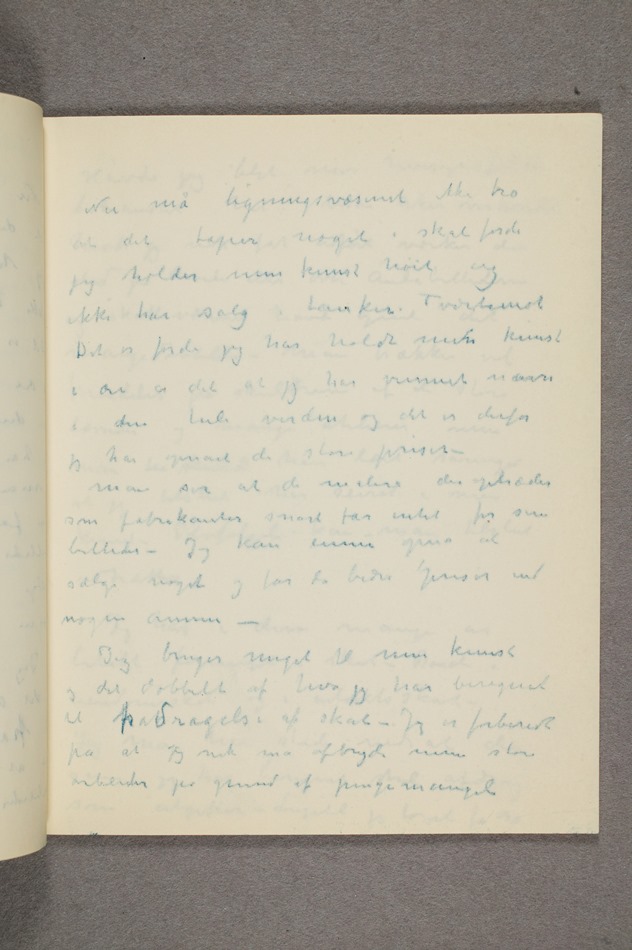 Nu må ligningsvæsenet ikke tro
at det taper noget i skat fordi
jeg holder min kunst høit og
ikke har salg i tanken. Tvertimot
Det er fordi jeg har holdt min kunst
i ære at det at jeg har vunnet navn
i den hele verden og det er derfor
jeg har opnaaet de store priser –
man ser at de malere der optræder
som fabrikanter snart får intet for sine
billeder – Jeg kan ennu opnå at
sælge noget og får da bedre priser end
nogen annen —
Jeg bruger meget til min kunst
og det dobbelt af hva jeg har beregnet
til fradragelse af skat – Jeg er forberedt
på at jeg nok må afbryde mine store
arbeider på grund af pengemangel